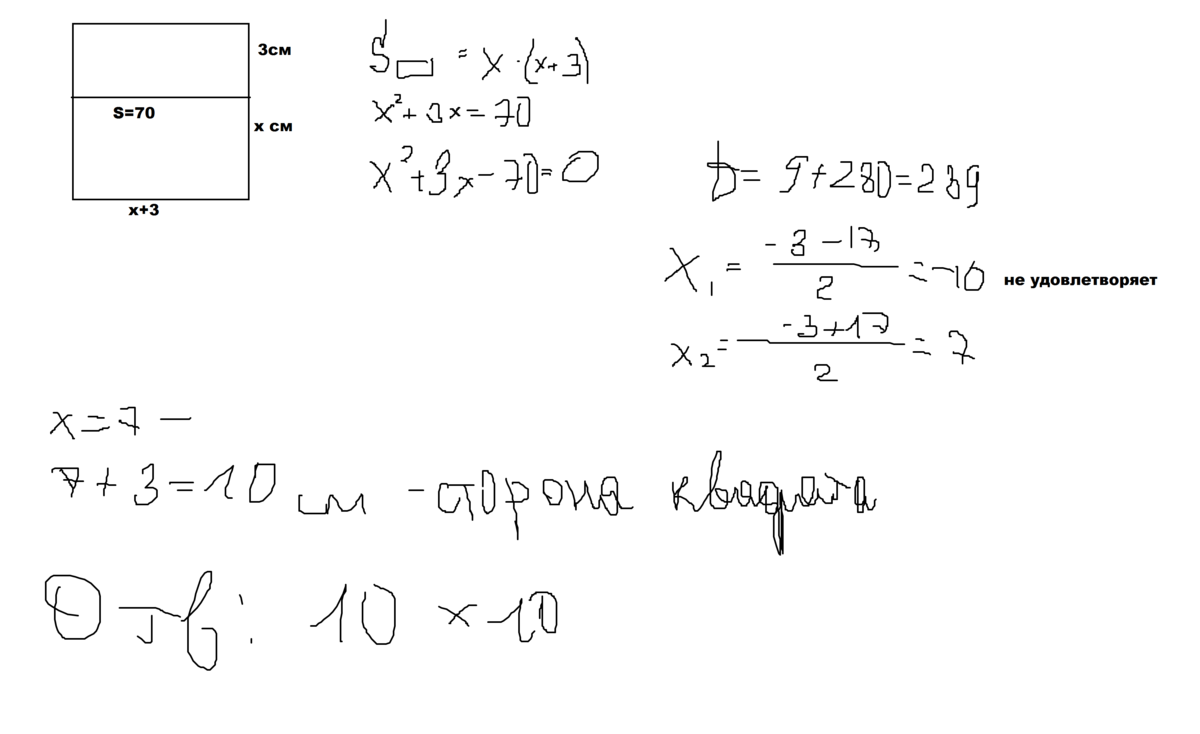 3см
S=70
x см
x+3
S▭ = x·(x+3)
x²+3x=70
x²+3x-70=0
D= 9+280=289
x₁ = (-3-17)/2 = -10 не удовлетворяет
x₂ = (-3+17)/2 = 7
x=7 -
7+3=10 см - сторона квадрата
Отв: 10 x 10